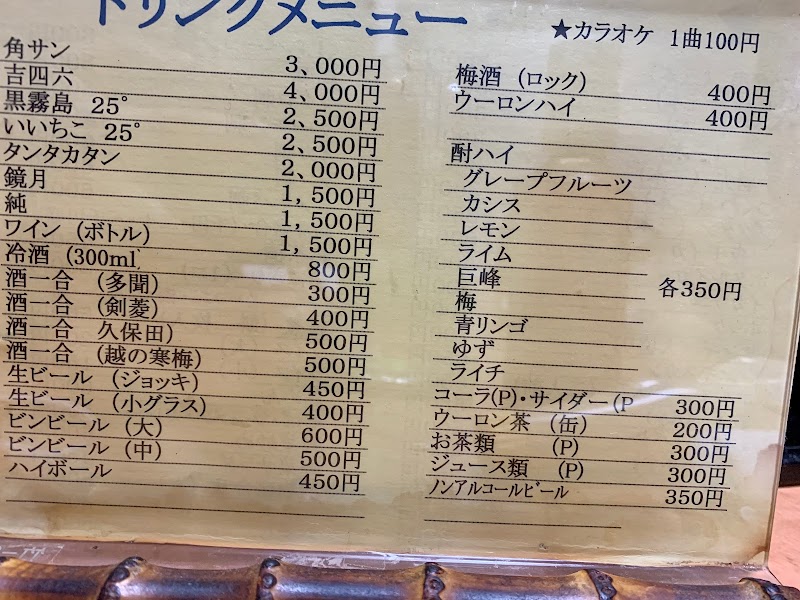 ドリンクメニュー
★カラオケ 1曲100円
角サン 3、000円
吉四六 4、000円
黒霧島 25° 2、500円
いいちこ 25° 2、500円
タンタカタン 2、000円
鏡月 1，500円
純 1，500円
ワイン（ボトル） 1，500円
冷酒（300ml 800円
酒一合（多聞） 300円
酒一合（剣菱） 400円
酒一合 久保田） 500円
酒一合（越の寒梅） 500円
生ビール（ジョッキ） 450円
生ビール（小グラス） 400円
ビンビール（大） 600円
ビンビール（中） 500円
ハイボール 450円
梅酒（ロック） 400円
ウーロンハイ 400円
酎ハイ
グレープフルーツ
カシス
レモン
ライム
巨峰 各350円
梅
青リンゴ
ゆず
ライチ
コーラ(P)・サイダー（P 300円
ウーロン茶（缶） 200円
お茶類 （P) 300円
ジュース類 （P) 300円
ノンアルコールビール 350円